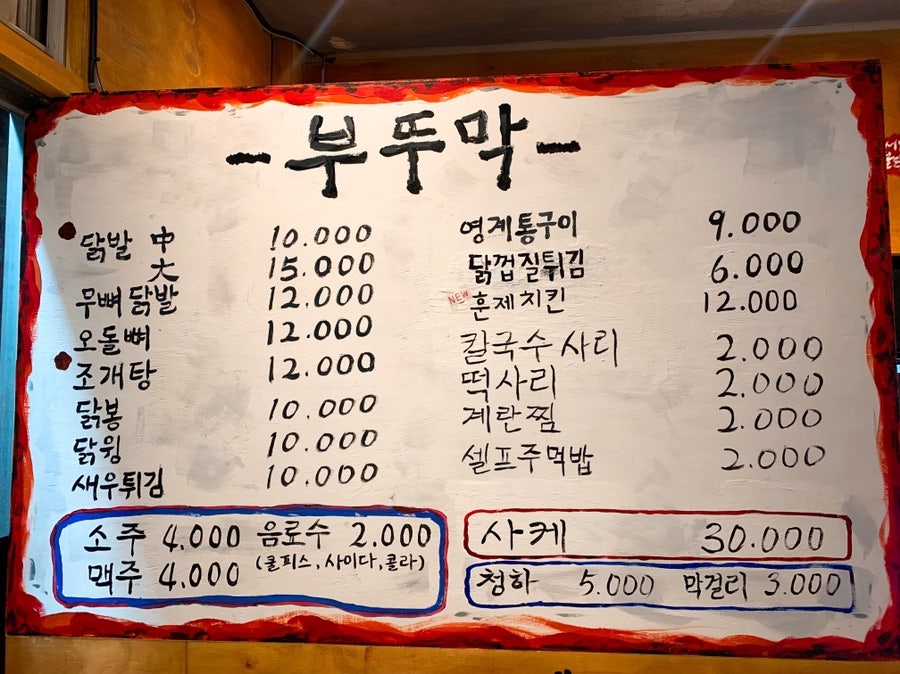 -부뚜막-
닭발 中 10.000
大 15.000
무뼈닭발 12.000
오돌뼈 12.000
조개탕 12.000
닭봉 10.000
닭윙 10.000
새우튀김 10.000
영계통구이 9.000
닭껍질튀김 6.000
NEW 훈제치킨 12.000
칼국수 사리 2.000
떡사리 2.000
계란찜 2.000
셀프주먹밥 2.000
소주 4.000 음료수 2.000
(쿨피스, 사이다, 콜라)
맥주 4.000
사케 30.000
청하 5.000 막걸리 3.000